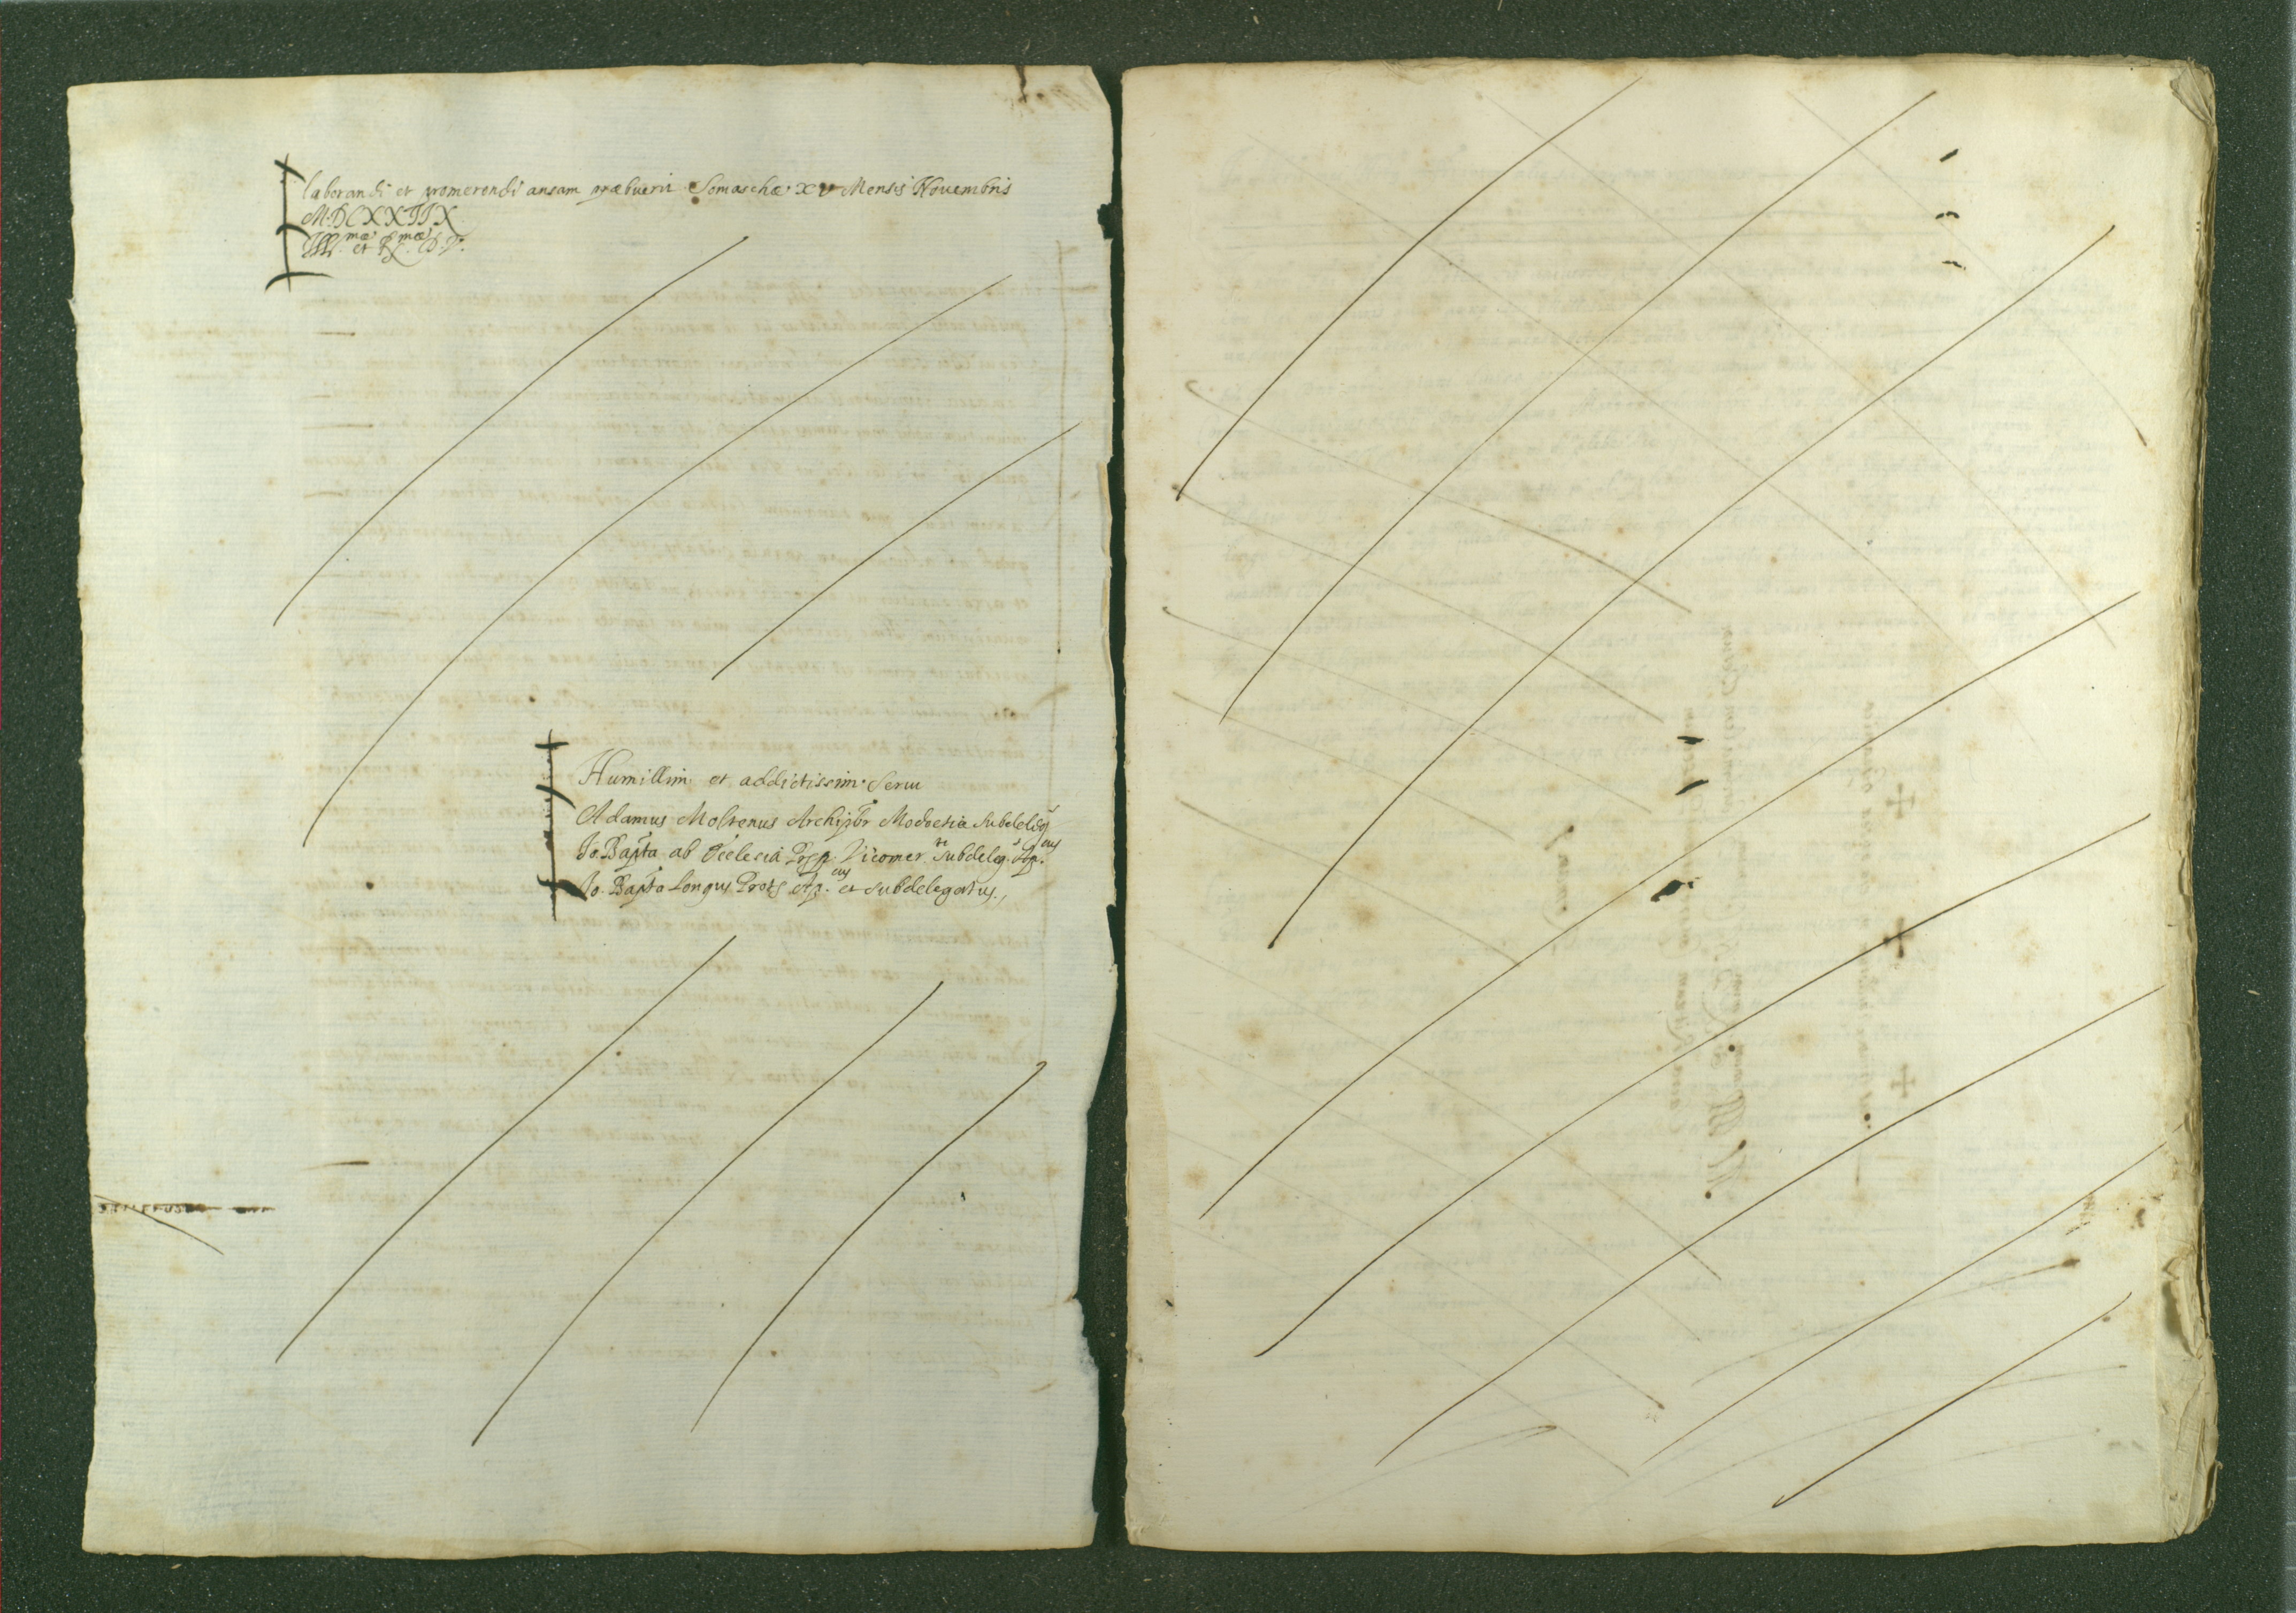 laborandi et promerendi ansam præbuerit Somaschæ XV Mensis Novembris
M.DCXXIIX
Ill.mæ et R.mæ D.V.
Humillim. et addictissim. Servi
Adamus Moltenus Archipbr Modoetiæ Subdeleg
Io. Bapta ab Ecclesia Vicomer. Subdeleg. Ap.cus
Io. Bapta Longus Prots Ap.cus et Subdelegatus.,